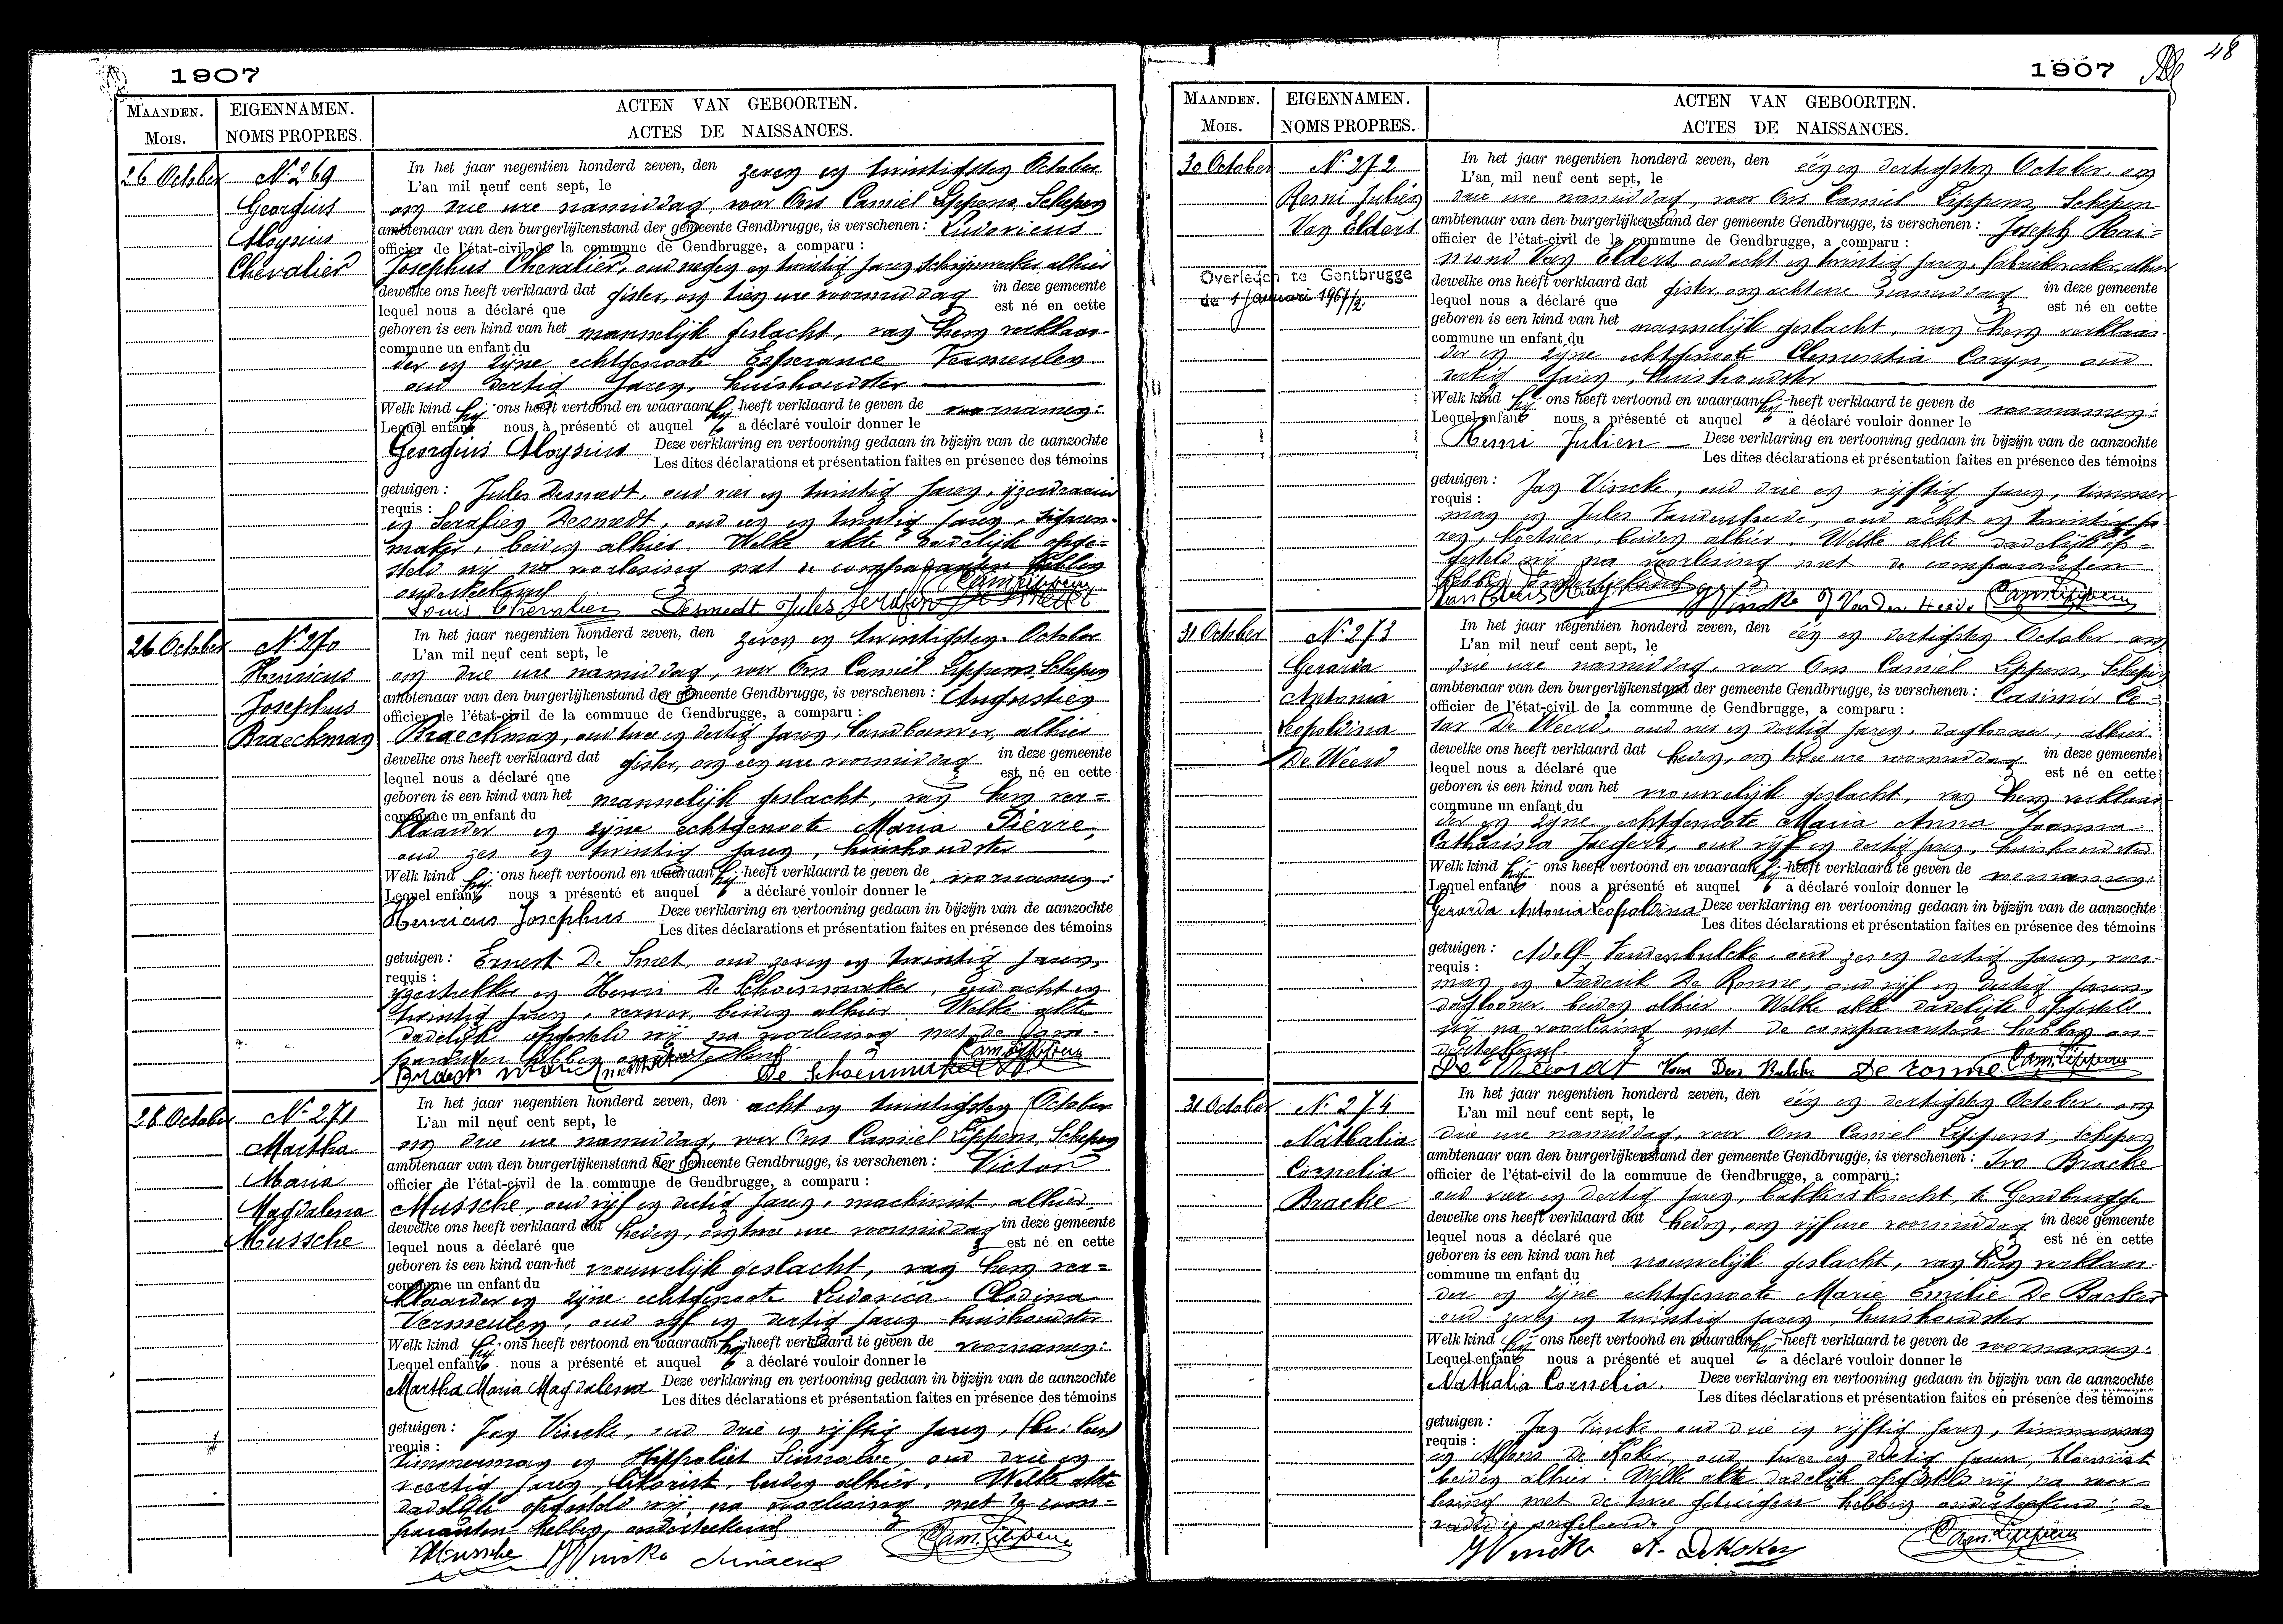 1907
MAANDEN.
Mois.
EIGENNAMEN.
NOMS PROPRES.
ACTEN VAN GEBOORTEN.
ACTES DE NAISSANCES.
26 October
N. 269
Georgius
Aloysius
Chevalier
In het jaar negentien honderd zeven, den zeven en twintigsten October
L'an mil neuf cent sept, le
om drie ure namiddag, voor Ons Camiel Lippens, Schepen
ambtenaar van den burgerlijkenstand der gemeente Gendbrugge, is verschenen : Ludovicus
officier de l'état-civil de la commune de Gendbrugge, a comparu :
Josephus Chevalier, oud negen en twintig jaren, schrijnwerker alhier
dewelke ons heeft verklaard dat gister, om tien ure voormiddag in deze gemeente
lequel nous a déclaré que est né en cette
geboren is een kind van het mannelijk geslacht, van hem verklaar-
commune un enfant du
der en zijne echtgenoote Esperance Vermeulen
oud dertig jaren, huishoudster
Welk kind hij ons heeft vertoond en waaraan hij heeft verklaard te geven de voornamen:
Lequel enfant nous a présenté et auquel a déclaré vouloir donner le
Georgius Aloysius Deze verklaring en vertooning gedaan in bijzijn van de aanzochte
Les dites déclarations et présentation faites en présence des témoins
getuigen : Jules Desmedt, oud vier en twintig jaren, ijzerdraaier
requis :
en Serafien Desmedt, oud een en twintig jaren,
maker, beiden alhier. Welke akte dadelijk opge-
steld wij na voorlezing met de comparanten hebben
onderteekend
Louis Chevalier Desmedt Jules Serafin Desmedt Cam. Lippens
26 October
N. 270
Henricus
Josephus
Braeckman
In het jaar negentien honderd zeven, den zeven en twintigsten October
L'an mil neuf cent sept, le
om drie ure namiddag, voor Ons Camiel Lippens, Schepen
ambtenaar van den burgerlijkenstand der gemeente Gendbrugge, is verschenen : Augustien
officier de l'état-civil de la commune de Gendbrugge, a comparu :
Braeckman, oud twee en dertig jaren, landbouwer, alhier
dewelke ons heeft verklaard dat gister, om een ure voormiddag in deze gemeente
lequel nous a déclaré que est né en cette
geboren is een kind van het mannelijk geslacht, van hem ver-
commune un enfant du
klaarder en zijne echtgenoote Maria Pierre,
oud zes en twintig jaren, huishoudster
Welk kind hij ons heeft vertoond en waaraan hij heeft verklaard te geven de voornamen:
Lequel enfant nous a présenté et auquel a déclaré vouloir donner le
Henricus Josephus Deze verklaring en vertooning gedaan in bijzijn van de aanzochte
Les dites déclarations et présentation faites en présence des témoins
getuigen : Ernest De Smet, oud zeven en twintig jaren,
requis :
en Henri De Schoenmaker, oud acht en
twintig jaren, wever, beiden alhier. Welke akte
dadelijk opgesteld wij na voorlezing met de com-
paranten hebben onderteekend
De Schoenmaker Cam. Lippens
28 October
N. 271
Martha
Maria
Magdalena
Mussche
In het jaar negentien honderd zeven, den acht en twintigsten October
L'an mil neuf cent sept, le
om drie ure namiddag, voor Ons Camiel Lippens, Schepen
ambtenaar van den burgerlijkenstand der gemeente Gendbrugge, is verschenen : Victor
officier de l'état-civil de la commune de Gendbrugge, a comparu :
Mussche, oud vijf en dertig jaren, machinist, alhier
dewelke ons heeft verklaard dat heden, om twee ure voormiddag in deze gemeente
lequel nous a déclaré que est né en cette
geboren is een kind van het vrouwelijk geslacht, van hem ver-
commune un enfant du
klaarder en zijne echtgenoote Ludovica Clodina
Vermeulen, oud vijf en dertig jaren huishoudster
Welk kind hij ons heeft vertoond en waaraan hij heeft verklaard te geven de voornamen:
Lequel enfant nous a présenté et auquel a déclaré vouloir donner le
Martha Maria Magdalena Deze verklaring en vertooning gedaan in bijzijn van de aanzochte
Les dites déclarations et présentation faites en présence des témoins
getuigen : Jan Vincke, oud drie en vijftig jaren,
requis :
timmerman en Hippoliet, oud drie en
veertig jaren, beiden alhier. Welke akte
dadelijk opgesteld wij na voorlezing met de com-
paranten hebben onderteekend
Mussche J Vincke Cam. Lippens
1907
48
MAANDEN.
Mois.
EIGENNAMEN.
NOMS PROPRES.
ACTEN VAN GEBOORTEN.
ACTES DE NAISSANCES.
30 October
N. 272
Remi Julien
Van Elders
Overleden te Gentbrugge
de 1 Januari 1967/2
In het jaar negentien honderd zeven, den één en dertigsten October, om
L'an mil neuf cent sept, le
drie ure namiddag, voor Ons Camiel Lippens, Schepen
ambtenaar van den burgerlijkenstand der gemeente Gendbrugge, is verschenen : Joseph Rai-
officier de l'état-civil de la commune de Gendbrugge, a comparu :
mond Van Elders, oud acht en twintig jaren, fabriekwerker, alhier
dewelke ons heeft verklaard dat gister, om acht ure namiddag in deze gemeente
lequel nous a déclaré que est né en cette
geboren is een kind van het mannelijk geslacht, van hem verklaar-
commune un enfant du
der en zijne echtgenoote Clementia Coryn, oud
dertig jaren, huishoudster
Welk kind hij ons heeft vertoond en waaraan hij heeft verklaard te geven de voornamen:
Lequel enfant nous a présenté et auquel a déclaré vouloir donner le
Remi Julien Deze verklaring en vertooning gedaan in bijzijn van de aanzochte
Les dites déclarations et présentation faites en présence des témoins
getuigen : Jan Vincke, oud drie en vijftig jaren, timmer-
requis :
man en Jules Vanderheyde, oud acht en twintig ja-
ren, koetsier, beiden alhier. Welke akte dadelijk op-
gesteld wij na voorlezing met de comparanten
hebben onderteekend
J Vincke J Van der Heede Cam. Lippens
31 October
N. 273
Gerarda
Antonia
Leopoldina
De Weerd
In het jaar negentien honderd zeven, den één en dertigsten October, om
L'an mil neuf cent sept, le
drie ure namiddag, voor Ons Camiel Lippens, Schepen
ambtenaar van den burgerlijkenstand der gemeente Gendbrugge, is verschenen : Casimir Ce-
officier de l'état-civil de la commune de Gendbrugge, a comparu :
sar De Weerd, oud vier en dertig jaren, daglooner, alhier
dewelke ons heeft verklaard dat heden, om drie ure voormiddag in deze gemeente
lequel nous a déclaré que est né en cette
geboren is een kind van het vrouwelijk geslacht, van hem verklaar-
commune un enfant du
der en zijne echtgenoote Maria Anna Joanna
Catharina Jaegers, oud vijf en dertig jaren, huishoudster
Welk kind hij ons heeft vertoond en waaraan hij heeft verklaard te geven de voornamen:
Lequel enfant nous a présenté et auquel a déclaré vouloir donner le
Gerarda Antonia Leopoldina Deze verklaring en vertooning gedaan in bijzijn van de aanzochte
Les dites déclarations et présentation faites en présence des témoins
getuigen : Adolf Vandenbulcke, oud zes en dertig jaren, voer-
requis :
man en Frederik De Ronne, oud vijf en dertig jaren,
daglooner beiden alhier. Welke akte dadelijk opgesteld
wij na voorlezing met de comparanten hebben on-
derteekend.
De Weerdt Van Den Bulcke De ronne Cam. Lippens
31 October
N. 274
Nathalia
Cornelia
Bracke
In het jaar negentien honderd zeven, den één en dertigsten October, om
L'an mil neuf cent sept, le
drie ure namiddag, voor Ons Camiel Lippens, Schepen
ambtenaar van den burgerlijkenstand der gemeente Gendbrugge, is verschenen : Ivo Bracke
officier de l'état-civil de la commune de Gendbrugge, a comparu :
oud vier en dertig jaren, bakkersknecht, te Gendbrugge
dewelke ons heeft verklaard dat heden, om vijf ure voormiddag in deze gemeente
lequel nous a déclaré que est né en cette
geboren is een kind van het vrouwelijk geslacht, van hem verklaar-
commune un enfant du
der en zijne echtgenoote Marie Emilie De Backer
oud zeven en twintig jaren, huishoudster
Welk kind hij ons heeft vertoond en waaraan hij heeft verklaard te geven de voornamen:
Lequel enfant nous a présenté et auquel a déclaré vouloir donner le
Nathalia Cornelia. Deze verklaring en vertooning gedaan in bijzijn van de aanzochte
Les dites déclarations et présentation faites en présence des témoins
getuigen : Jan Vincke oud drie en vijftig jaren, timmerman
requis :
en Alfons De Koker, oud twee en dertig jaren, bloemist
beiden alhier. Welke akte dadelijk opgesteld wij na voor-
lezing met de twee getuigen hebben onderteekend; de
vader is ongeleerd.
J Vincke A. De Koker Cam. Lippens